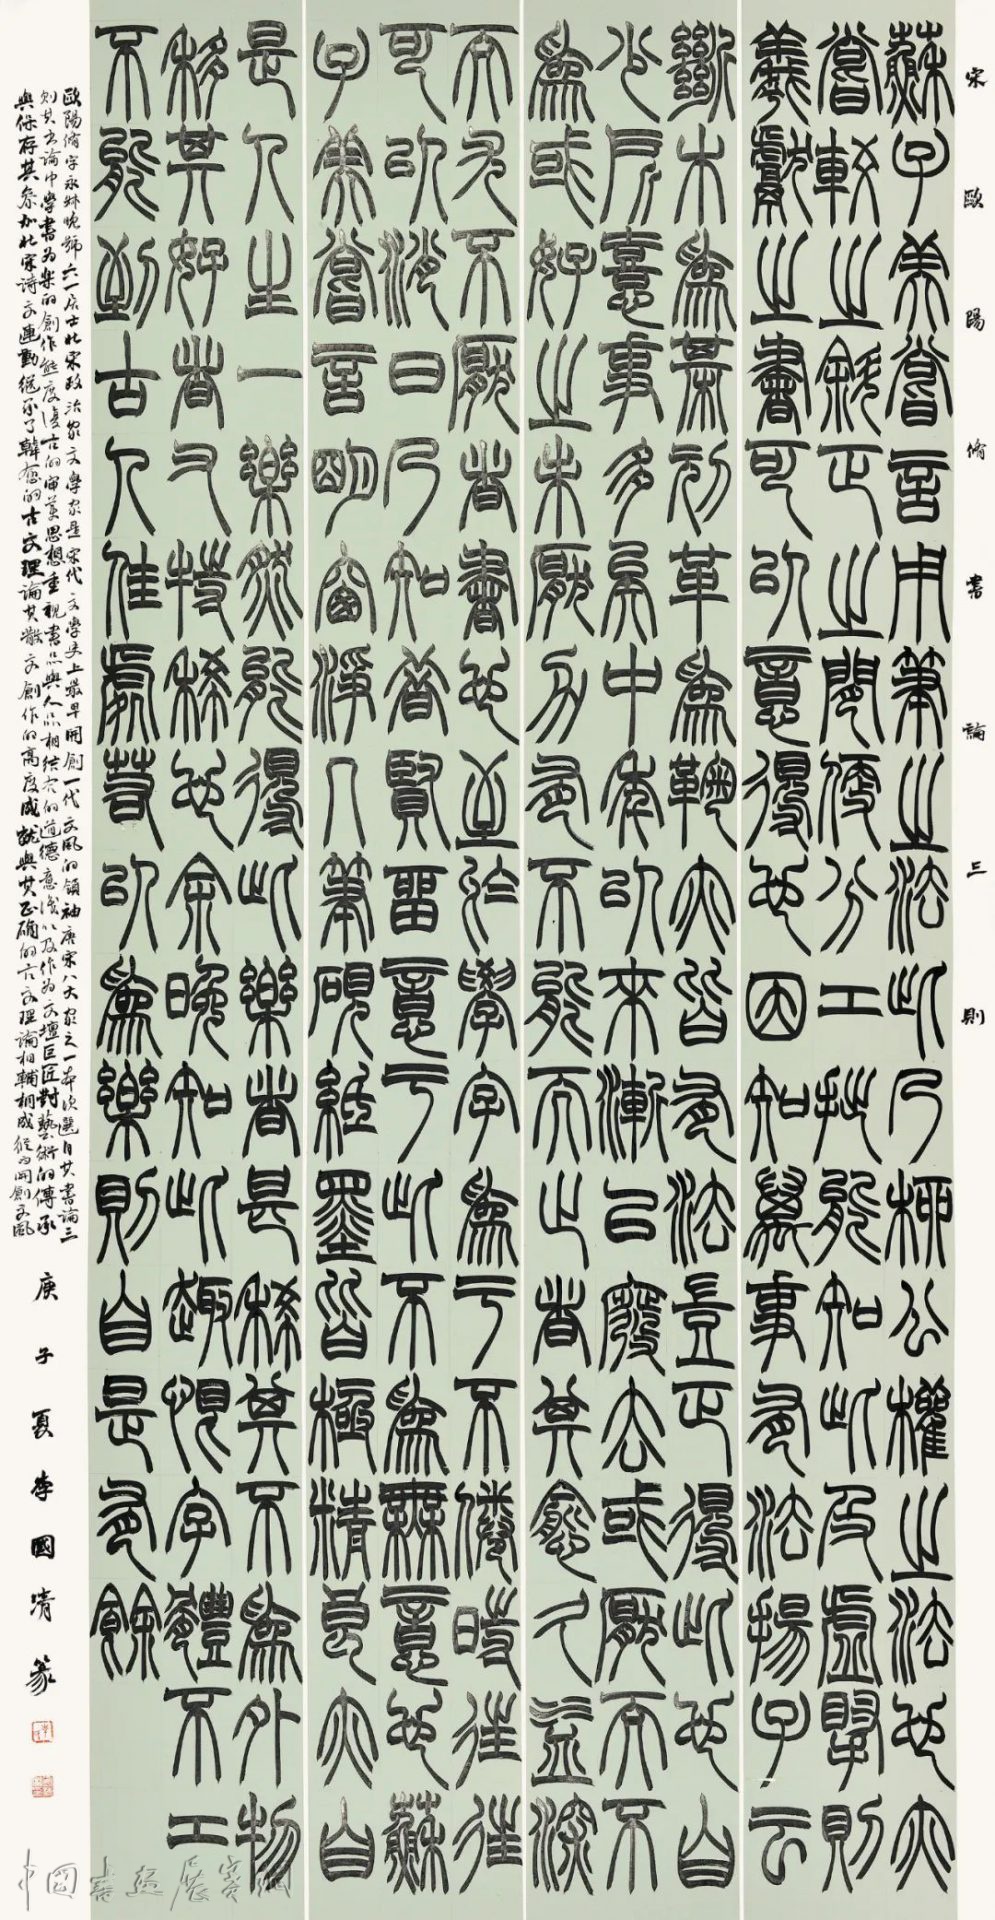 宋歐陽脩書論三則
蘇子美嘗言用筆之法此乃柳公權之法也亦
嘗較之斜正之間便分工拙能知此及虛腕則
羲獻之書可以意得也因知萬事有法揚子云
斷木為棊刓革為鞠亦皆有法豈正得此也自
少所喜事多矣中年以來漸已廢去或厭而不
為或好之未厭力有不能而止者其愈久益深
而尤不厭者書也至於學字為于不倦時往往
可以消日乃知昔賢留意于此不為無意也蘇
子美嘗言明窗淨几筆硯紙墨皆極精良亦自
是人生一樂然能得此樂者甚稀其不為外物
移其好者又特稀也余晚知此趣恨字體不工
不能到古人佳處若以為樂則自是有餘
歐陽脩字永叔晚號六一居士北宋政治家文學家是宋代文學史上最早開創一代文風的領袖唐宋八大家之一本次選自其書論三
則其書論中學書为樂的創作態度復古的審美思想重視書品與人品相結合的道德意識以及作为文壇巨匠對藝術的傳承
與保存其參加北宋詩文運動繼承了韓愈的古文理論其散文創作的高度成就與其正確的古文理論相輔相成從而開創文風
庚子夏李國清篆
中國書法展賽網